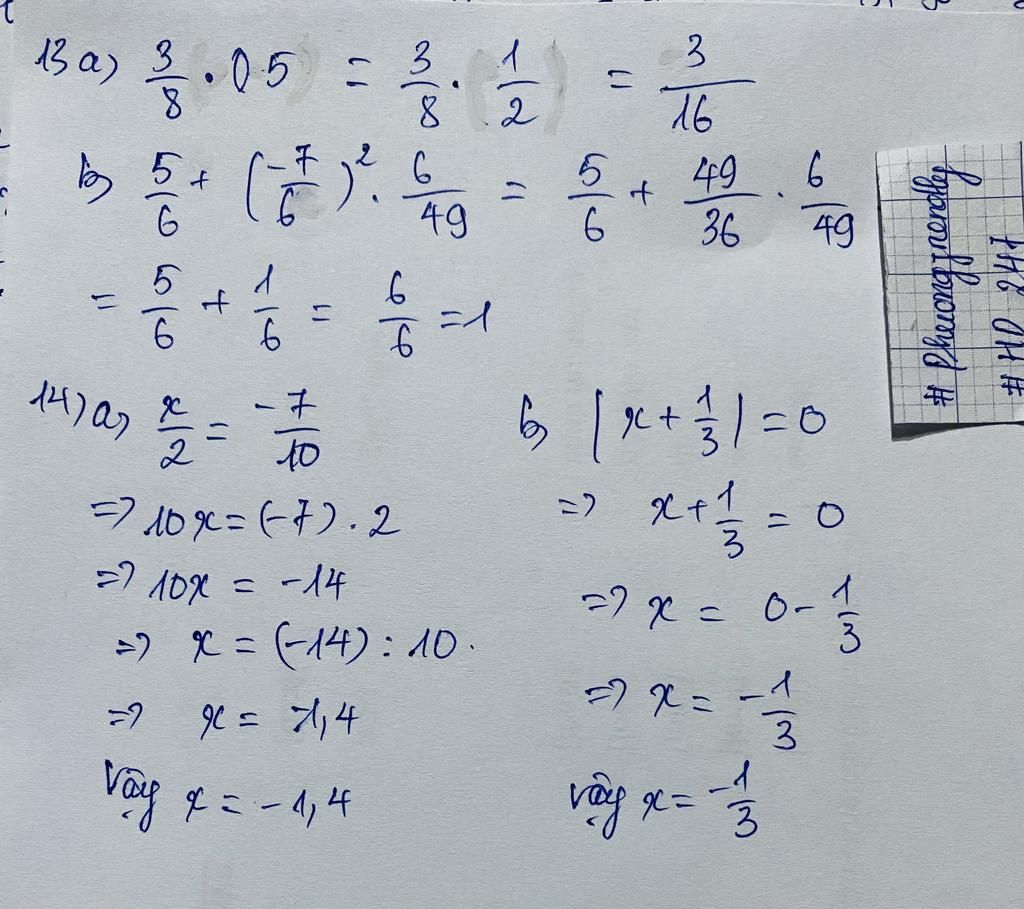 13a) 3/8 · 0 5 = 3/8 · (1/2) = 3/16
b) 5/6 + (-7/6)² · 6/49 = 5/6 + 49/36 · 6/49
= 5/6 + 1/6 = 6/6 = 1
14) a) x/2 = -7/10
=> 10x = (-7) . 2
=> 10x = -14
=> x = (-14) : 10.
=> x = -1,4
Vậy x = -1,4
b) |x + 1/3| = 0
=> x + 1/3 = 0
=> x = 0 - 1/3
=> x = -1/3
Vậy x = -1/3
# HD 247